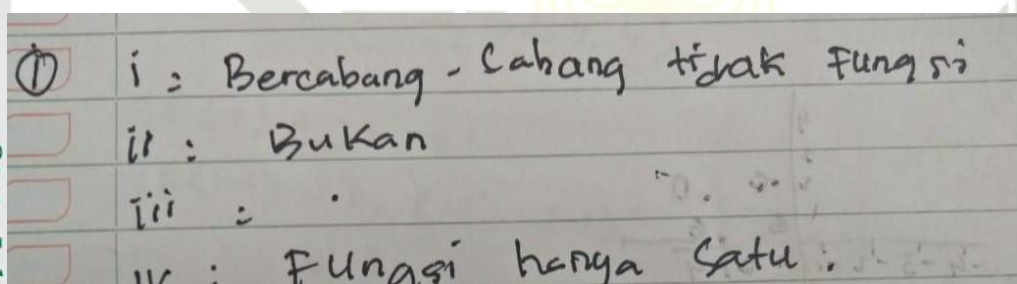 ① i : Bercabang - Cabang tidak Fungsi
ii : Bukan
iii : .
iv : Fungsi hanya Satu.